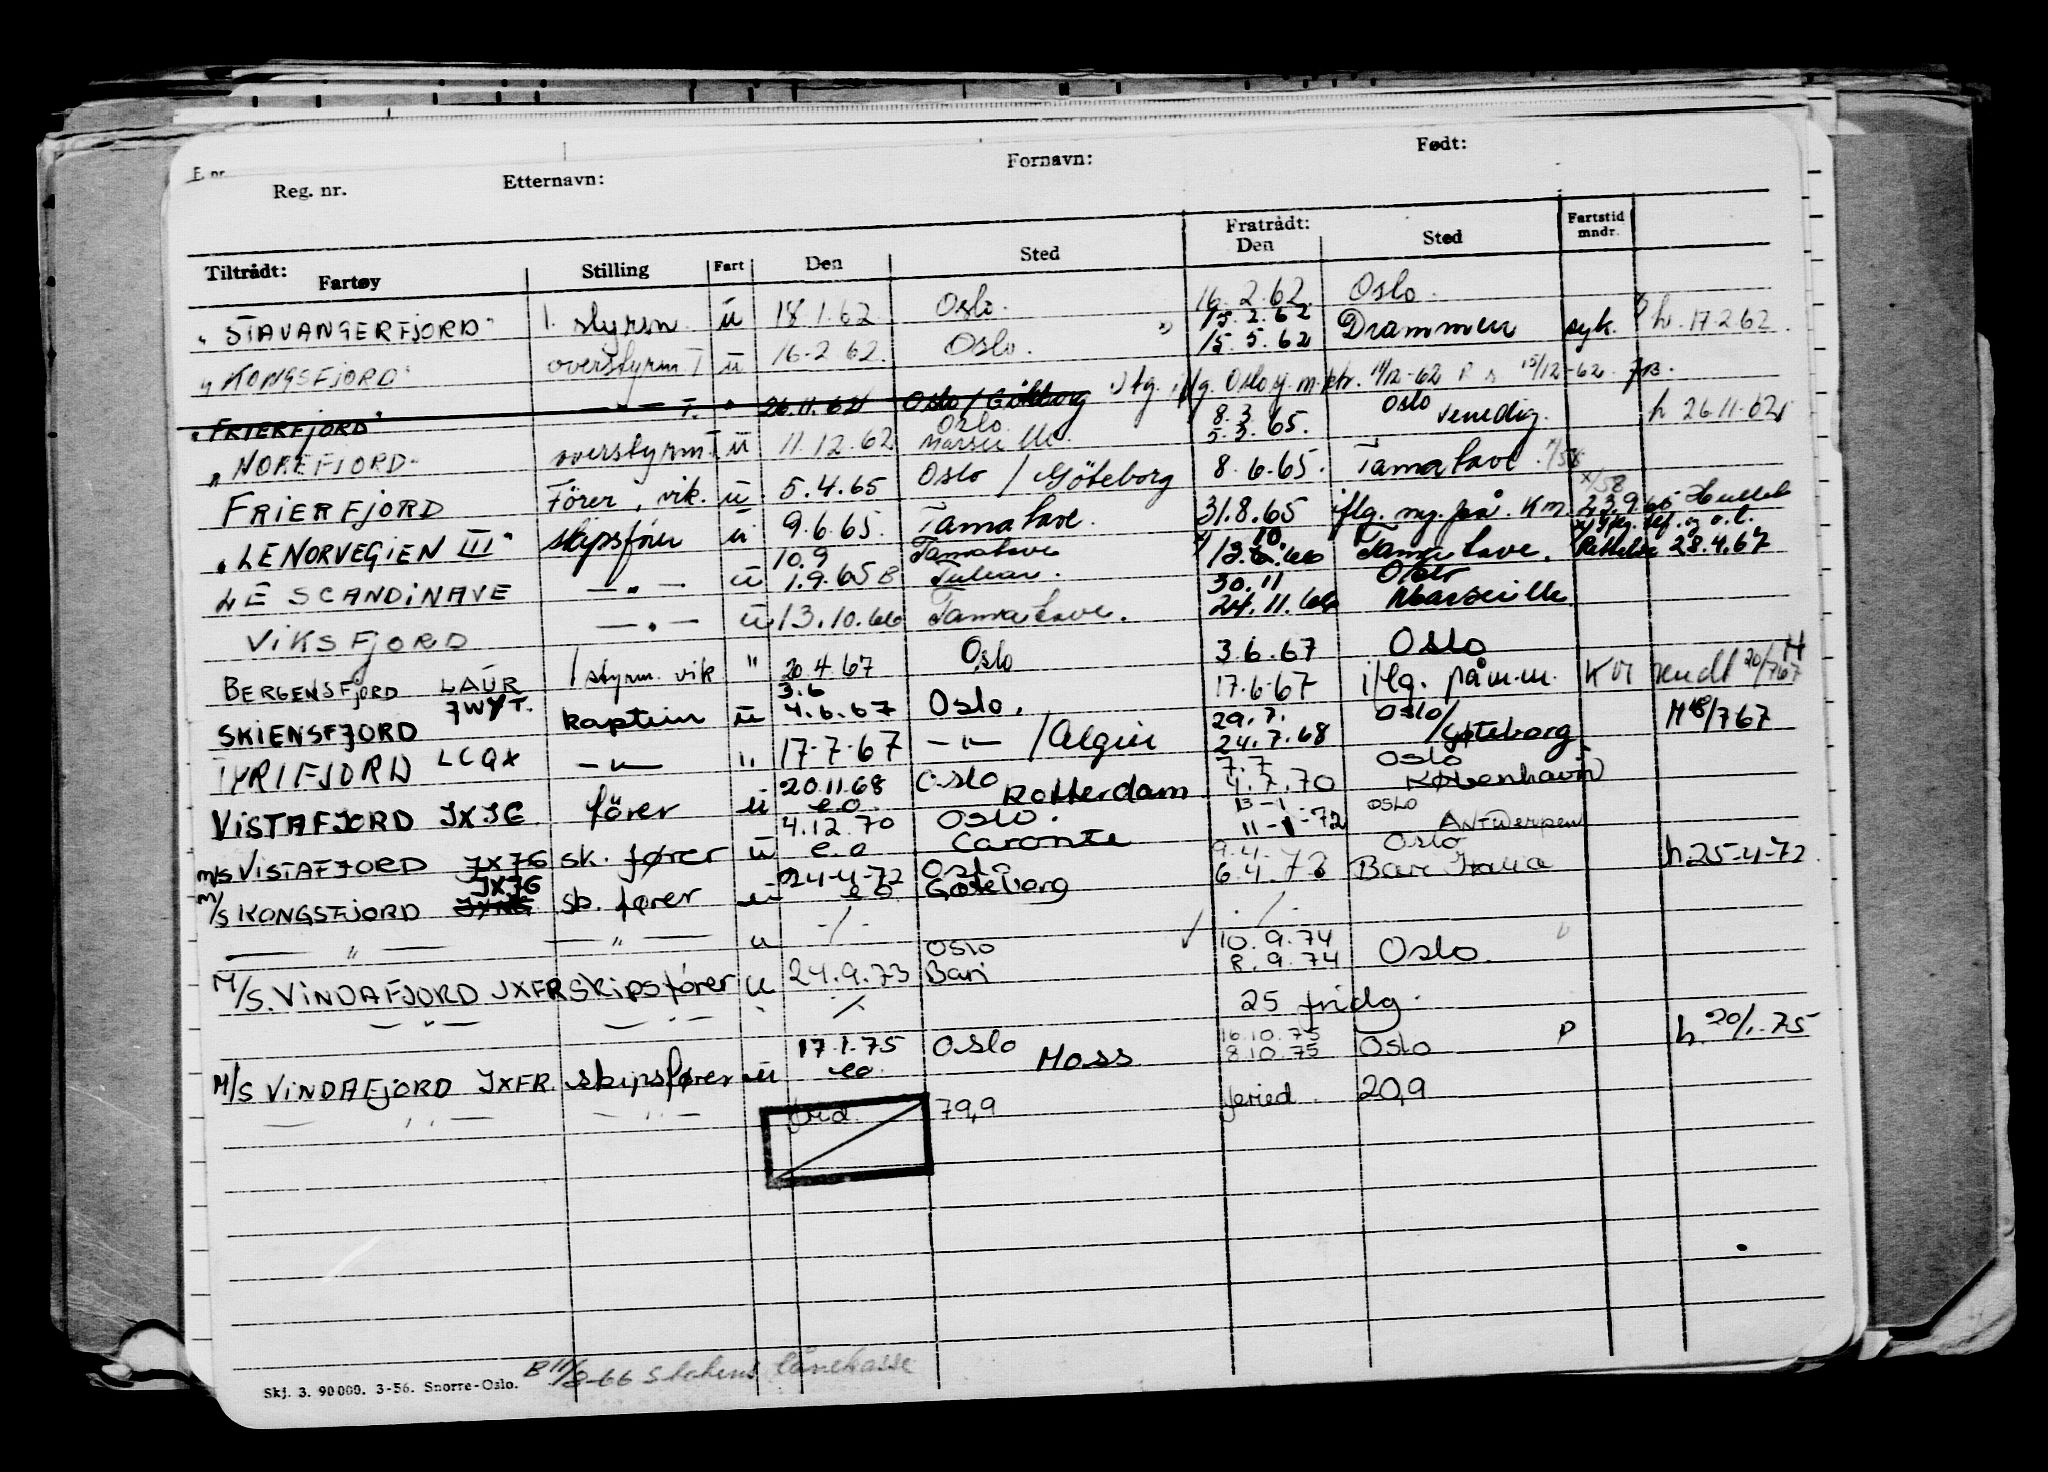 Reg. nr. Etternavn: Fornavn: Født:
Tiltrådt: Fratrådt:
Fartøy Stilling Fart Den Sted Den Sted Fartstid mndr.
"STAVANGERFJORD" 1. styrm. u 18.1.62 Oslo. 16.2.62 Oslo.
15.2.62
"KONGSFJORD" overstyrm. I u 16-2 62. Oslo. " 15.5.62 Drammen syk. h. 17-2 62.
"FRIERFJORD" — " — I. " 26.11.62 Oslo / Göteborg 14/12-62 15/12-62
Oslo 8.3 Oslo
"NOREFJORD" overstyrm. I u 11.12.62 Marseille. 5.3.65. Venedig. h 26.11.62
FRIERFJORD Förer, vik. u 5.4.65 Oslo / Göteborg 8.6.65. Tamatave.
"LE NORVEGIEN III" skipsfører u 9.6.65. Tamatave. 31.8.65 iflg. 23.9.65
10.9 Tamatave 10.
LE SCANDINAVE — " — u 1.9.65 B Tulear. Tamatave. Rettelse 28.4.67
30.11 Oslo
VIKSFJORD — " — u 13.10.66 Tamatave. 24.11.66 Marseille
BERGENSFJORD LAUR 1 styrm. vik " 20.4.67 Oslo 3.6.67 Oslo
3.6
SKIENSFJORD JWYT. kaptein u 4.6.67 Oslo. 17.6.67 iflg. 20/7 67
29.7. Oslo/
TYRIFJORD LCQX — " — " 17-7-67 — " — / Algier 24.7.68 Gøteborg. M 18/7 67
20.11.68 Oslo 7.7 Oslo
VISTAFJORD JXJG fører u e.o. Rotterdam 4.7.70 København
4.12.70 Oslo. 13-1 OSLO
M/S VISTAFJORD JXJG sk. fører u e.o Caronte 11-1-72 ANTWERPEN
24-4-72 Oslo 9.4. Oslo
M/S KONGSFJORD JXJG sk. fører u e o Gøteborg 6.4.73 Bari Italia h 25-4-72
— " — — " — u -/- -/-
OSLO 10.9.74
M/S. VINDAFJORD JXFR skipsfører u 24.9.73 Bari 8.9.74 Oslo.
— " — — " — 25 fridg.
17.1.75 Oslo 16.10.75
M/S VINDAFJORD JXFR. skipsfører u eo. Moss 8.10.75 Oslo P h. 20/1.75
— " — — " — frid. 79,9 feried. 20,9
Skj. 3. 90000. 3-56. Snorre-Oslo. B 11/2-66 Statens lånekasse